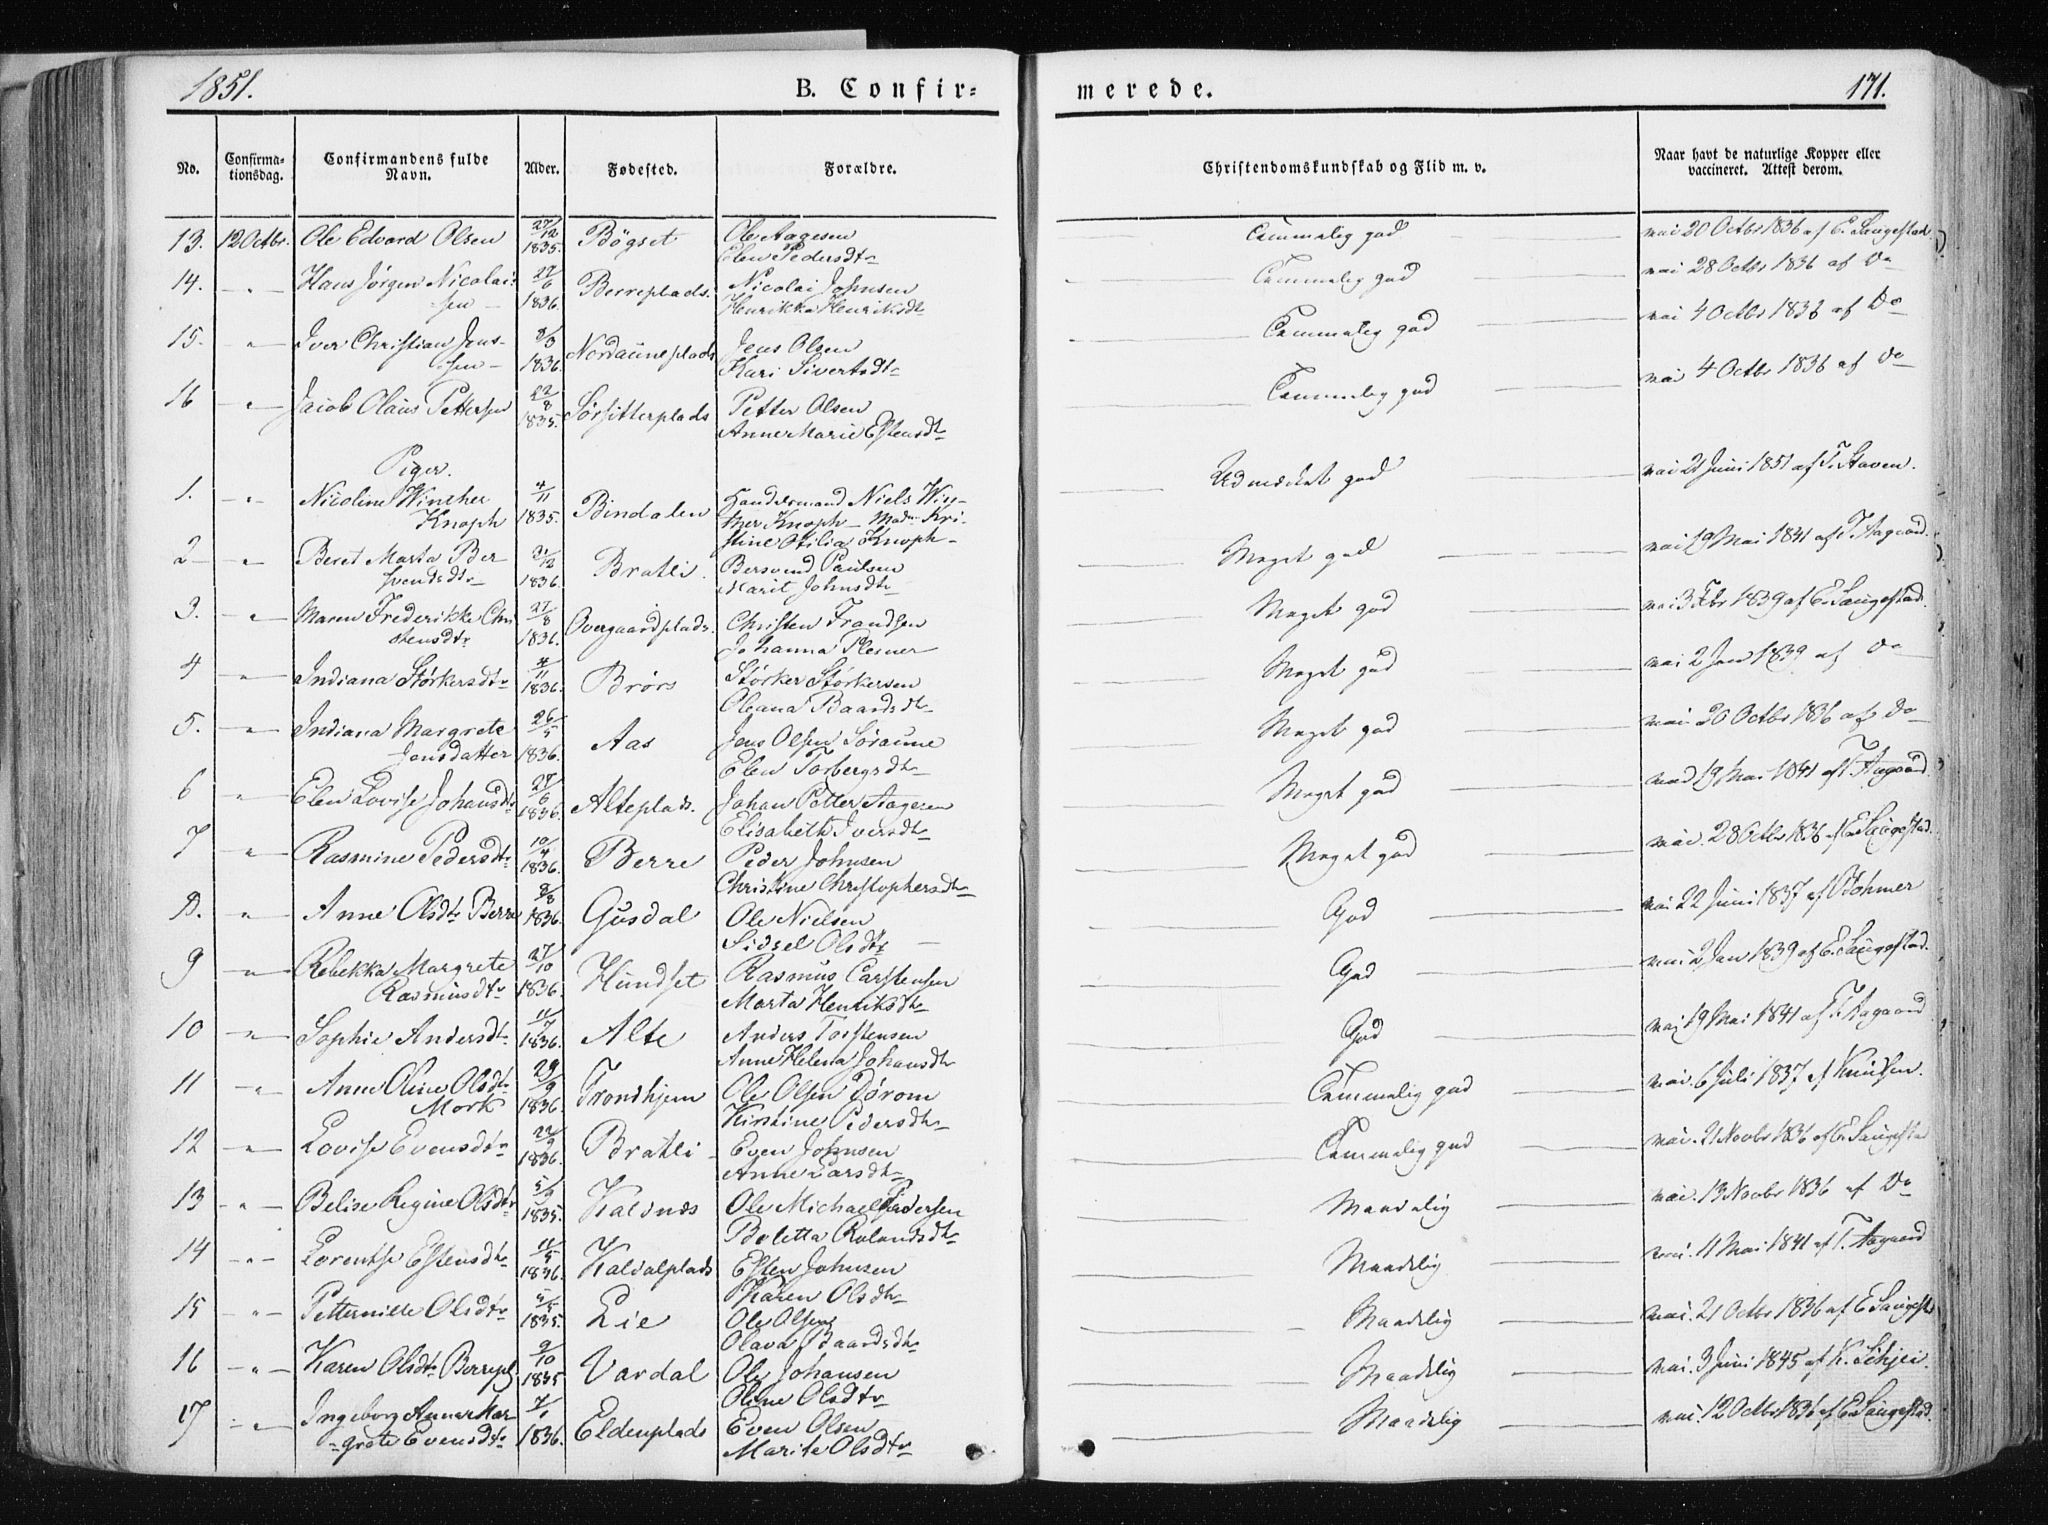 1851.
B. Confir-
merede.
171.
No.
Confirma-
tionsdag.
Confirmandens fulde
Navn.
Alder.
Fødested.
Forældre.
Christendomskundskab og Flid m. v.
Naar havt de naturlige Kopper eller
vaccineret. Attest derom.
13. 12 Octbr. Ole Edvard Olsen 27/12 1835. Bögset Ole Aagesen
Elen Pedersdtr Temmelig god vac 20 Octbr 1836 af E. Saugestad
14. " Hans Jörgen Nicolai-
sen 27/6 1836. Berreplads. Nicolai Johnsen
Henrikka Henriksdtr Temmelig god vac 28 Octbr 1836 af Do
15. " Iver Christian Jens-
sen 1836. Nordauneplads Jens Olsen
Kari Sivertsdtr Temmelig god vac 4 Octbr 1836 af Do
16 " Jacob Olaus Pettersen 22/8 1835. Sörsitterplads Petter Olsen
Anne Marie Estensdtr Temmelig god vac 4 Octbr 1836 af Do
Piger.
1. " Nicoline Winther
Knoph 4/11 1835. Bindalen Handelsmand Niels Win-
ther Knoph - Madm Kri-
stine Otilia Knoph Udmærket god vac 21 Juni 1851 af T. Staven.
2 " Beret Marta Ber-
svendsdtr 31/12 1836. Bratli. Bersvend Paulsen
Marit Johnsdtr Meget god vac 19 Mai 1841 af T. Aagaard
3. " Maren Frederikke Chri-
stensdtr 27/8 1836. Overgaardplads. Christen Frandsen
Johanna Plesner Meget god vac 3 Fbr 1839 af E. Saugestad.
4 " Indiana Störkersdtr 4/11 1836. Brörs Störker Störkersen
Oleana Baardsdtr Meget god vac 2 Jan 1839 af Do
5. " Indiana Margrete
Jensdatter 26/5 1836. Aas Jens Olsen Söraune
Elen Torbergsdtr Meget god vac 20 Octbr 1836 af Do
6 " Elen Lovise Johansdtr 27/6 1836. Alteplads. Johan Petter Aagesen
Elisabeth Iversdtr Meget god vac 19 Mai 1841 af T. Aagaard
7 " Rasmine Pedersdtr 10/4 1836. Berre Peder Johnsen
Christine Christophersdtr Meget god vac. 28 Octbr 1836 af E. Saugestad.
8. " Anne Olsdtr Berre 1836. Gusdal Ole Nielsen
Sidsel Olsdtr God vac 22 Juni 1837 af Stohmer
9 " Rebekka Margrete
Rasmusdtr 27/10 1836. Hundset Rasmus Carstensen
Marta Henriksdtr God vac 2 Jan 1839 af E. Saugestad.
10 " Sophie Andersdtr 11/7 1836. Alte Anders Torstensen
Anne Helena Johansdtr God vac 19 Mai 1841 af T. Aagaard
11 " Anne Oline Olsdtr
Mork 29/9 1836. Trondhjem Ole Olsen Dörom
Kirstine Pedersdtr Temmelig god vac. 6 Juli 1837 af Knudsen.
12 " Lovise Evensdtr 22/9 1836. Bratli Even Johnsen
Anne Larsdtr Temmelig god vac. 21 Novbr 1836 af E. Saugestad
13 " Belise Regine Olsdtr 5/9 1835. Kalsnæs Ole Michael Pedersen
Boletta Rolandsdtr Maadelig vac. 13 Novbr 1836 af Do
14 " Lorentse Estensdtr 11/5 1836. Kaldalplads Esten Johnsen
Karen Olsdtr Maadelig vac. 11 Mai 1841 af T. Aagaard
15 " Petternille Olsdtr 5/5 1835. Lie Ole Olsen
Olava Baardsdtr Maadelig vac. 21 Octbr 1836 af E. Saugestd
16 " Karen Olsdtr Berrepl 9/10 1835 Vardal Ole Johansen
Oline Olsdtr Maadelig vac. 3 Juni 1845 af K. Schjei.
17 " Ingeborg Anne Mar-
grete Evensdtr 7/1 1836. Eldenplads Even Olsen
Marite Olsdtr Maadelig vac. 12 Octbr 1836 af E. Saugestad.